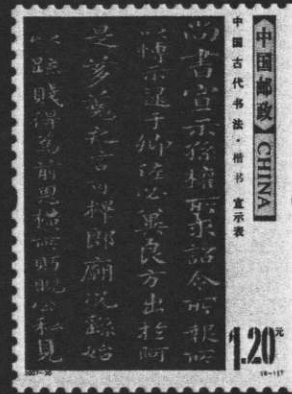 中国邮政 CHINA
中国古代书法·楷书 宣示表
尚書宣示孫權所求詔令所報所
以博示逮于卿佐必冀良方出於阿
是芻蕘之言可擇郎廟況繇始
以疏賤得為前恩橫所眄睨公私見
1.20元
2007-30
(6-1)T